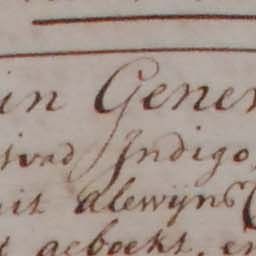 in Gener
ivad Indigo
uit Alewijns
t geboekt, en